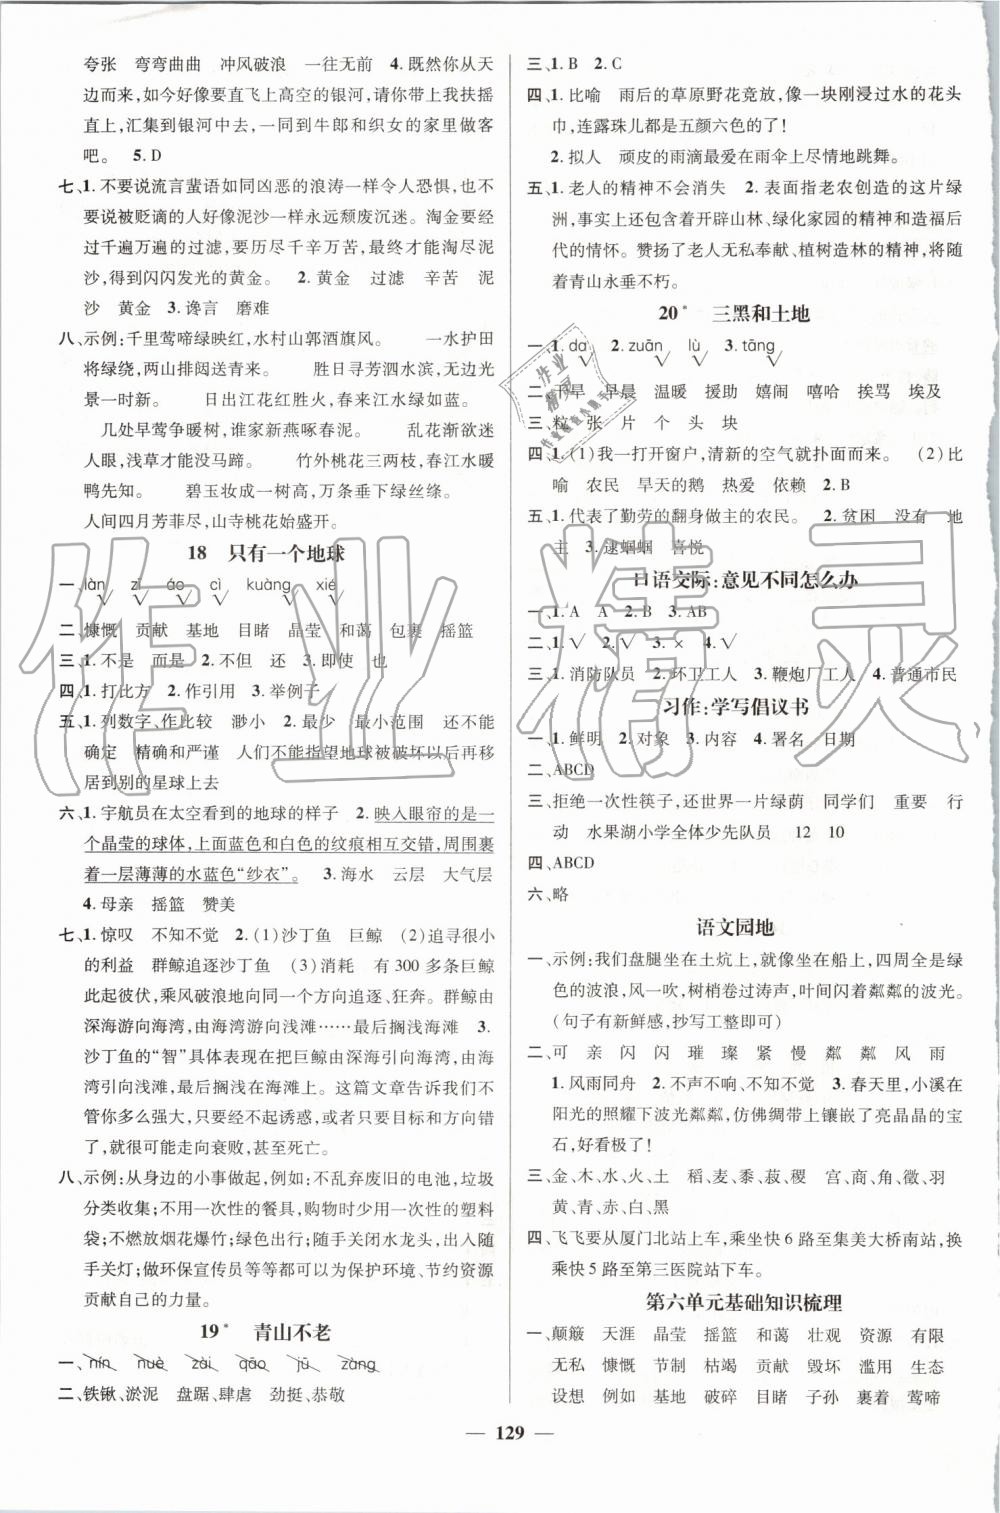 夸张　弯弯曲曲　冲风破浪　一往无前　4.既然你从天
边而来,如今好像要直飞上高空的银河,请你带上我扶摇
直上,汇集到银河中去,一同到牛郎和织女的家里做客
吧。　5.D
七、1.不要说流言蜚语如同凶恶的浪涛一样令人恐惧,也不
要说被贬谪的人好像泥沙一样永远颓废沉迷。淘金要经
过千遍万遍的过滤,要历尽千辛万苦,最终才能淘尽泥
沙,得到闪闪发光的黄金。　2.黄金　过滤　辛苦　泥
沙　黄金　3.谗言　磨难
八、示例:千里莺啼绿映红,水村山郭酒旗风。　一水护田
将绿绕,两山排闼送青来。　胜日寻芳泗水滨,无边光
景一时新。　日出江花红胜火,春来江水绿如蓝。
几处早莺争暖树,谁家新燕啄春泥。　乱花渐欲迷
人眼,浅草才能没马蹄。　竹外桃花三两枝,春江水暖
鸭先知。　碧玉妆成一树高,万条垂下绿丝绦。
人间四月芳菲尽,山寺桃花始盛开。
18　只有一个地球
一、làn　zǐ　áo　cì　kuàng　xié
二、慷慨　贡献　基地　目睹　晶莹　和蔼　包裹　摇篮
三、1.不是　而是　2.不但　还　3.即使　也
四、1.打比方　2.作引用　3.举例子
五、1.列数字、作比较　渺小　2.最少　最小范围　还不能
确定　精确和严谨　人们不能指望地球被破坏以后再移
居到别的星球上去
六、1.宇航员在太空看到的地球的样子　2.映入眼帘的是一
个晶莹的球体,上面蓝色和白色的纹痕相互交错,周围裹
着一层薄薄的水蓝色“纱衣”。　3.海水　云层　大气层
4.母亲　摇篮　赞美
七、1.惊叹　不知不觉　2.(1)沙丁鱼　巨鲸　(2)追寻很小
的利益　群鲸追逐沙丁鱼　(3)消耗　有300多条巨鲸
此起彼伏,乘风破浪地向一个方向追逐、狂奔。群鲸由
深海游向海湾,由海湾游向浅滩……最后搁浅海滩　3.
沙丁鱼的“智”具体表现在把巨鲸由深海引向海湾,由海
湾引向浅滩,最后搁浅在海滩上。这篇文章告诉我们不
管你多么强大,只要经不起诱惑,或者只要方向错
了,就很可能走向衰败,甚至死亡。
八、示例:从身边的小事做起,例如:不乱弃废旧的电池,垃圾
分类收集;不用一次性的餐具,购物时少用一次性塑料
袋;不燃放烟花爆竹;绿色出行;随手关闭水龙头,出门随
手关灯;做环保宣传员等等都可以为保护环境、节约资源
贡献自己的力量。
19*　青山不老
一、nín　nuè　zài　qāo　jū　zàng
二、铁锹、淤泥　盘踞、肆虐　劲挺、恭敬
三、1.B　2.C
四、1.比喻　雨后的草原野花竞放,像一块刚浸过水的花头
巾,连露珠儿都是五颜六色的了!
2.拟人　顽皮的雨滴最爱在雨伞上尽情地跳舞。
五、1.老人的精神不会消失　2.表面指老农创造的这片绿
洲,事实上还包含着开辟山林、绿化家园的精神和造福后
代的情怀。赞扬了老人无私奉献、植树造林的精神,将随
着青山永垂不朽。
20*　三黑和土地
一、1.da　2.zuān　lù　3.tāng
二、干旱　早晨　温暖　援助　嬉闹　嘻哈　挨骂　埃及
三、粒　张　片　个　头　块
四、1.(1)我一打开窗户,清新的空气就扑面而来。　(2)比
喻　农民　旱天的鹅　热爱　依赖　2.B
五、1.代表了勤劳的翻身做主的农民。　2.贫困　没有　地
主　3.逮蝈蝈　喜悦
口语交际:意见不同怎么办
一、1.A　A　2.B　3.AB
二、1.√　2.√　3.×　4.√
三、1.消防队员　2.环卫工人　3.鞭炮厂工人　4.普通市民
习作:学写倡议书
一、1.鲜明　2.对象　3.内容　4.署名　日期
二、ABCD
三、拒绝一次性筷子,还世界一片绿荫　同学们　重要　行
动　水果湖小学全体少先队员　12　10
四、ABCD
六、略
语文园地
一、示例:我们盘腿坐在土坑上,就像坐在船上,四周全是绿
色的波浪,风一吹,树梢卷过涛声,叶间闪着粼粼的波光。
(句子有新鲜感,抄写工整即可)
二、可　亲　闪　闪　璀　璨　紧　慢　粼　粼　风　雨
1.风雨同舟　2.不声不响、不知不觉　3.春天里,小溪在
阳光的照耀下波光粼粼,仿佛绸带上镶嵌了亮晶晶的宝
石,好看极了!
三、金、木、水、火、土　稻、麦、黍、菽、稷　宫、商、角、徵、羽
黄、青、赤、白、黑
四、飞飞要从厦门北站上车,乘坐快6路至集美大桥南站,换
乘快5路至第三医院站下车。
第六单元基础知识梳理
一、颠簸　天涯　晶莹　摇篮　和蔼　壮观　资源　有限
无私　慷慨　节制　枯竭　贡献　毁坏　滥用　生态
设想　例如　基地　破碎　目睹　子孙　裹着　莺啼
— 129 —
作业精灵